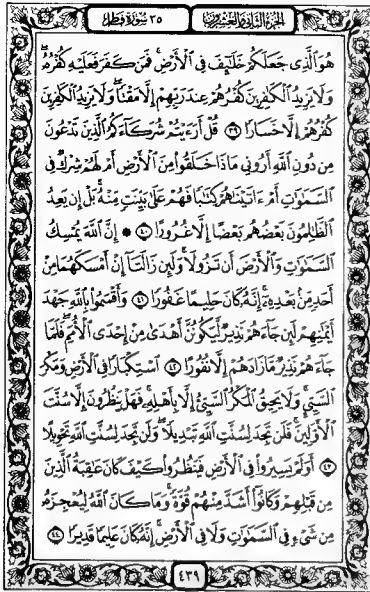 الجزء الثاني والعشرون
٣٥ سورة فاطر
هُوَ ٱلَّذِى جَعَلَكُمْ خَلَٰٓئِفَ فِى ٱلْأَرْضِ فَمَن كَفَرَ فَعَلَيْهِ كُفْرُهُۥ
وَلَا يَزِيدُ ٱلْكَٰفِرِينَ كُفْرُهُمْ عِندَ رَبِّهِمْ إِلَّا مَقْتًا وَلَا يَزِيدُ ٱلْكَٰفِرِينَ
كُفْرُهُمْ إِلَّا خَسَارًا ٣٩ قُلْ أَرَءَيْتُمْ شُرَكَآءَكُمُ ٱلَّذِينَ تَدْعُونَ
مِن دُونِ ٱللَّهِ أَرُونِى مَاذَا خَلَقُوا۟ مِنَ ٱلْأَرْضِ أَمْ لَهُمْ شِرْكٌ فِى
ٱلسَّمَٰوَٰتِ أَمْ ءَاتَيْنَٰهُمْ كِتَٰبًا فَهُمْ عَلَىٰ بَيِّنَتٍ مِّنْهُ بَلْ إِن يَعِدُ
ٱلظَّٰلِمُونَ بَعْضُهُم بَعْضًا إِلَّا غُرُورًا ٤٠ ۞ إِنَّ ٱللَّهَ يُمْسِكُ
ٱلسَّمَٰوَٰتِ وَٱلْأَرْضَ أَن تَزُولَا وَلَئِن زَالَتَآ إِنْ أَمْسَكَهُمَا مِنْ
أَحَدٍ مِّنۢ بَعْدِهِۦٓ إِنَّهُۥ كَانَ حَلِيمًا غَفُورًا ٤١ وَأَقْسَمُوا۟ بِٱللَّهِ جَهْدَ
أَيْمَٰنِهِمْ لَئِن جَآءَهُمْ نَذِيرٌ لَّيَكُونُنَّ أَهْدَىٰ مِنْ إِحْدَى ٱلْأُمَمِ فَلَمَّا
جَآءَهُمْ نَذِيرٌ مَّا زَادَهُمْ إِلَّا نُفُورًا ٤٢ ٱسْتِكْبَارًا فِى ٱلْأَرْضِ وَمَكْرَ
ٱلسَّيِّئِ وَلَا يَحِيقُ ٱلْمَكْرُ ٱلسَّيِّئُ إِلَّا بِأَهْلِهِۦ فَهَلْ يَنظُرُونَ إِلَّا سُنَّتَ
ٱلْأَوَّلِينَ فَلَن تَجِدَ لِسُنَّتِ ٱللَّهِ تَبْدِيلًا وَلَن تَجِدَ لِسُنَّتِ ٱللَّهِ تَحْوِيلًا
٤٣ أَوَلَمْ يَسِيرُوا۟ فِى ٱلْأَرْضِ فَيَنظُرُوا۟ كَيْفَ كَانَ عَٰقِبَةُ ٱلَّذِينَ
مِن قَبْلِهِمْ وَكَانُوٓا۟ أَشَدَّ مِنْهُمْ قُوَّةً وَمَا كَانَ ٱللَّهُ لِيُعْجِزَهُۥ
مِن شَىْءٍ فِى ٱلسَّمَٰوَٰتِ وَلَا فِى ٱلْأَرْضِ إِنَّهُۥ كَانَ عَلِيمًا قَدِيرًا ٤٤
٤٣٩